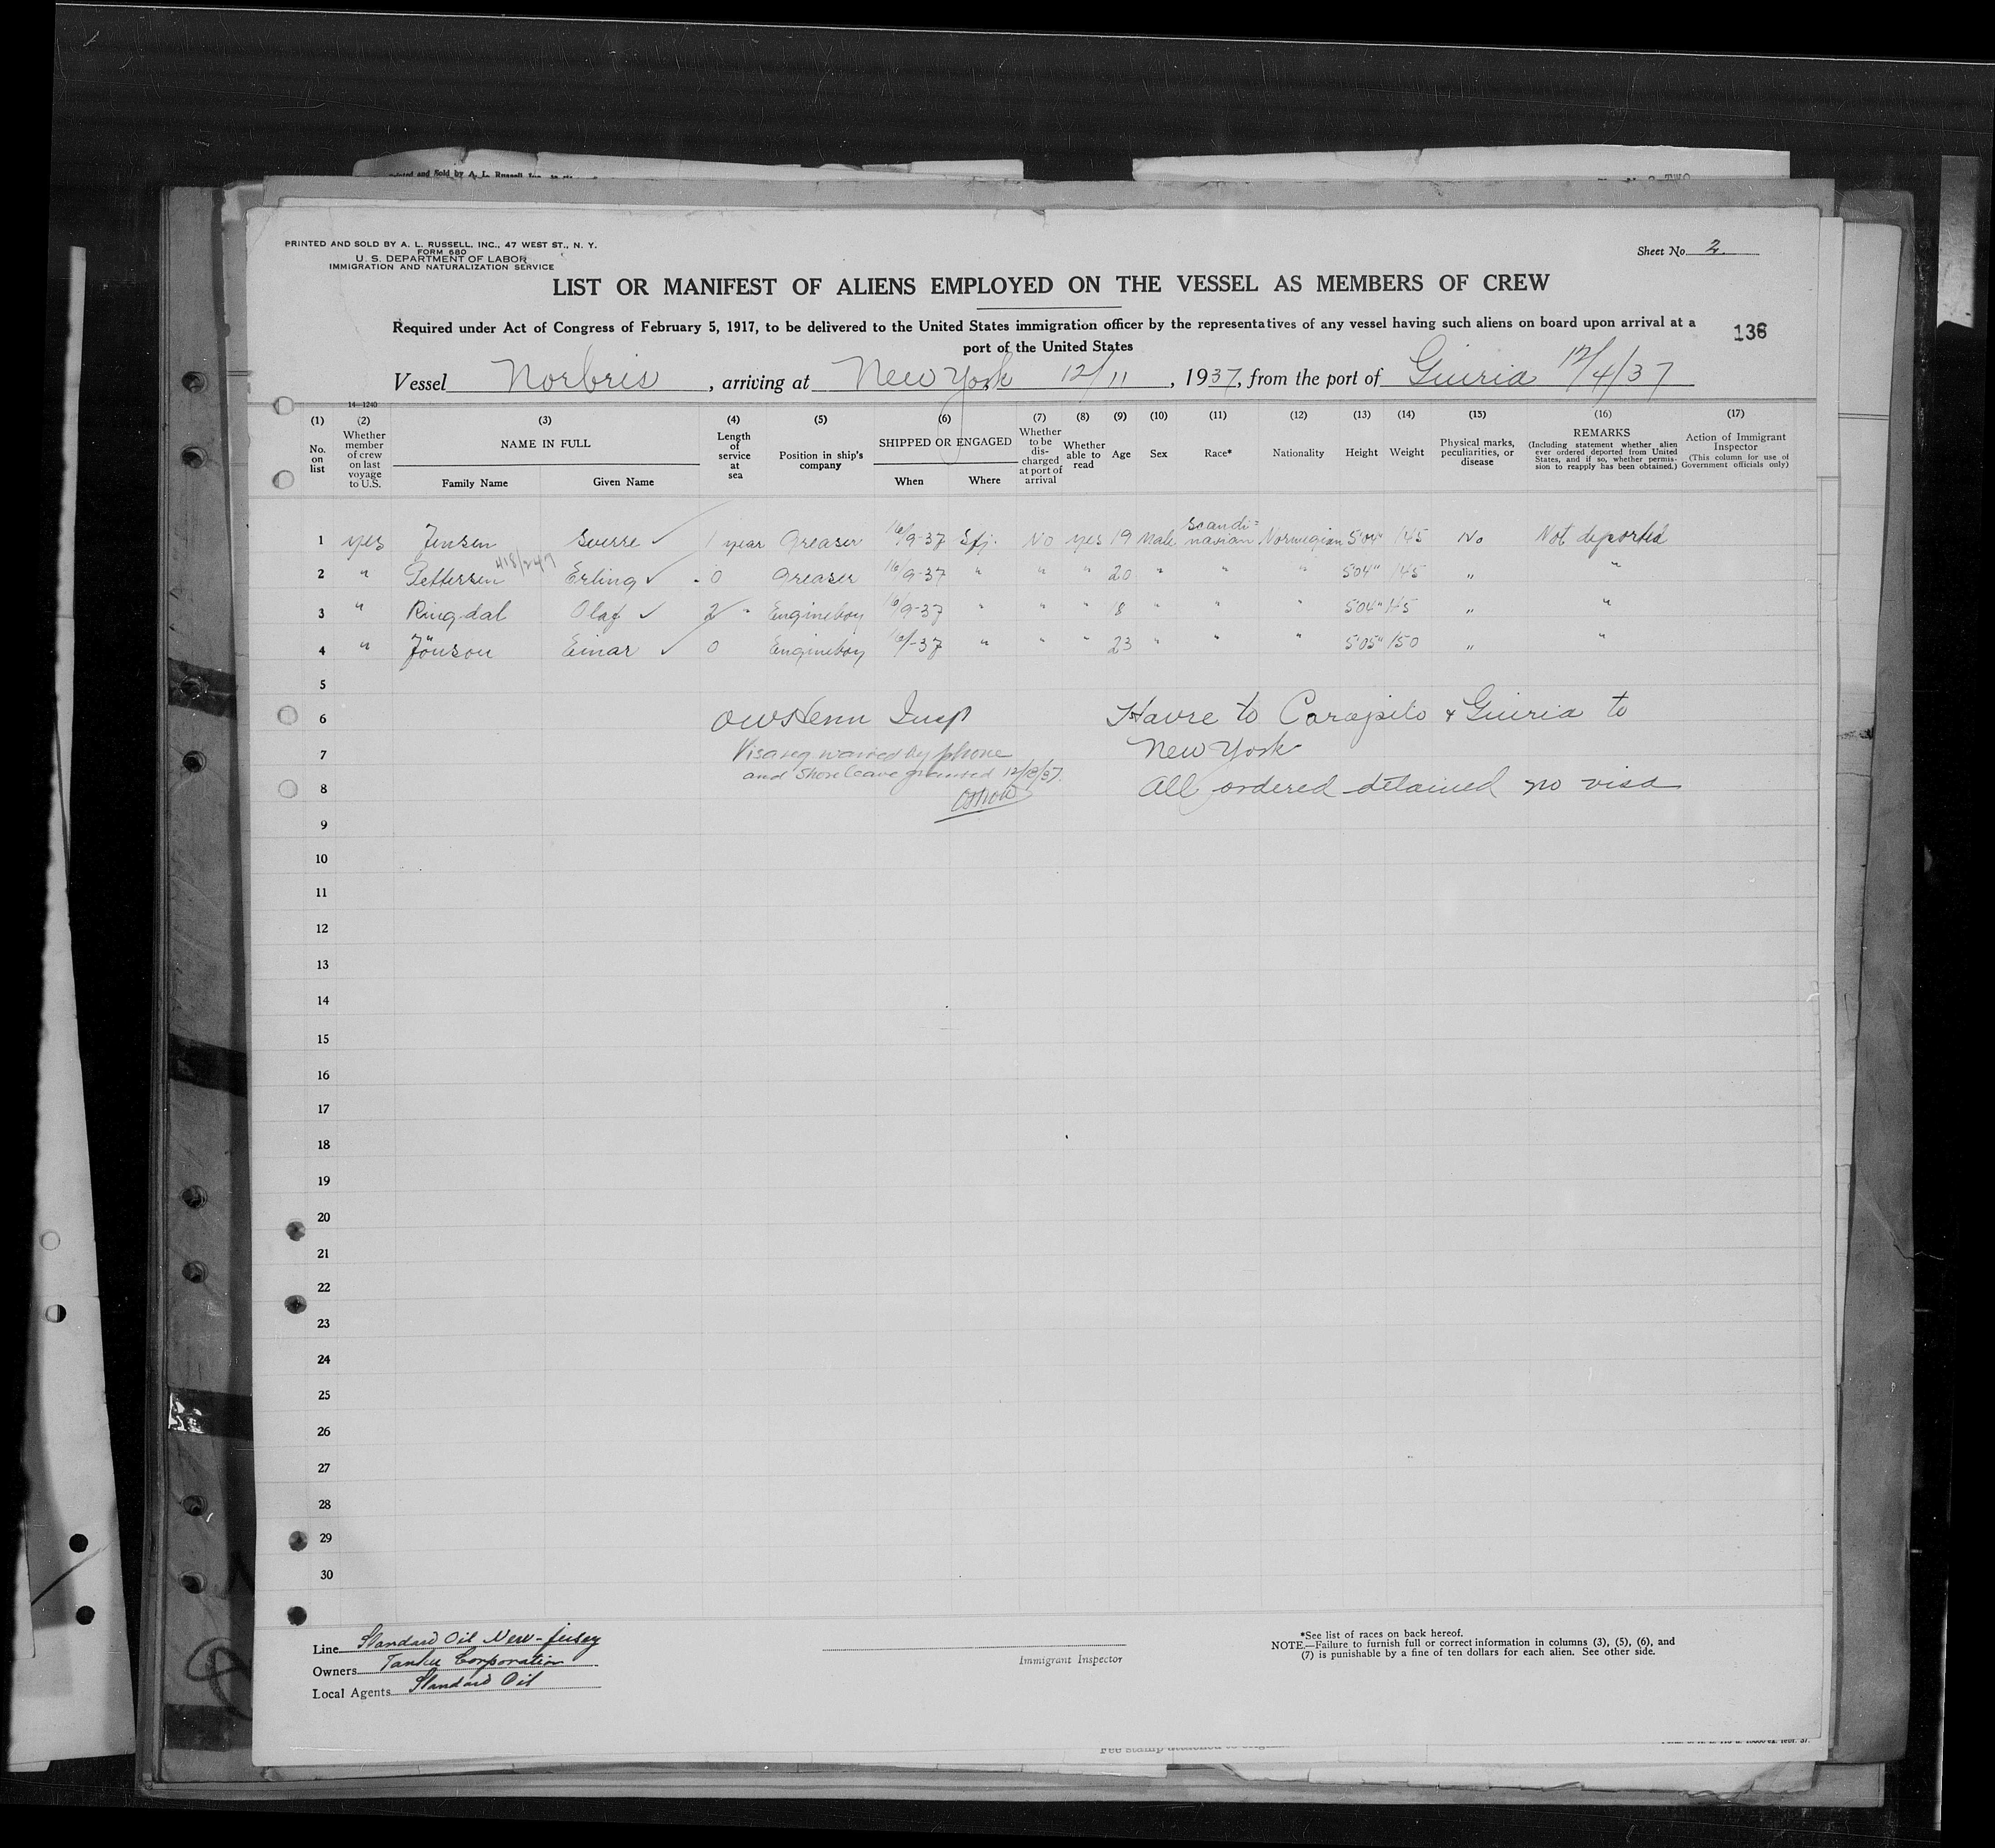 Printed and Sold by A. L. Russell, Inc.
PRINTED AND SOLD BY A. L. RUSSELL, INC., 47 WEST ST., N. Y.
FORM 680
U. S. DEPARTMENT OF LABOR
IMMIGRATION AND NATURALIZATION SERVICE
Sheet No. 2
LIST OR MANIFEST OF ALIENS EMPLOYED ON THE VESSEL AS MEMBERS OF CREW
Required under Act of Congress of February 5, 1917, to be delivered to the United States immigration officer by the representatives of any vessel having such aliens on board upon arrival at a
port of the United States
136
Vessel Norbris, arriving at New York 12/11, 1937, from the port of Guiria 12/4/37
14—1240
(1) (2) (3) (4) (5) (6) (7) (8) (9) (10) (11) (12) (13) (14) (15) (16) (17)
No. on list
Whether member of crew on last voyage to U.S.
NAME IN FULL
Family Name
Given Name
Length of service at sea
Position in ship's company
SHIPPED OR ENGAGED
When
Where
Whether to be discharged at port of arrival
Whether able to read
Age
Sex
Race*
Nationality
Height
Weight
Physical marks, peculiarities, or disease
REMARKS
(Including statement whether alien ever ordered deported from United States, and if so, whether permission to reapply has been obtained.)
Action of Immigrant Inspector
(This column for use of Government officials only)
1 yes Jensen Sverre ✓ 1 year Greaser 16/9-37 Sfj. No yes 19 Male Scandi=navian Norwegian 5'04" 145 No Not deported
418/247
2 " Pettersen Erling ✓ 0 Greaser 16/9-37 " " " 20 " " " 5'04" 145 " "
3 " Ringdal Olaf ✓ 2 " Engineboy 16/9-37 " " " 18 " " " 5'04" 145 " "
4 " Jönson Einar ✓ 0 Engineboy 16/-37 " " " 23 " " " 5'05" 150 " "
5
6 Insp Havre to Caripito & Guiria to
7 Visa req waived by phone New York
and shore leave granted 12/12/37.
8 All ordered detained no visa
9
10
11
12
13
14
15
16
17
18
19
20
21
22
23
24
25
26
27
28
29
30
Line Standard Oil New-Jersey
Owners Tanker Corporation
Local Agents Standard Oil
Immigrant Inspector
*See list of races on back hereof.
NOTE.—Failure to furnish full or correct information in columns (3), (5), (6), and
(7) is punishable by a fine of ten dollars for each alien. See other side.